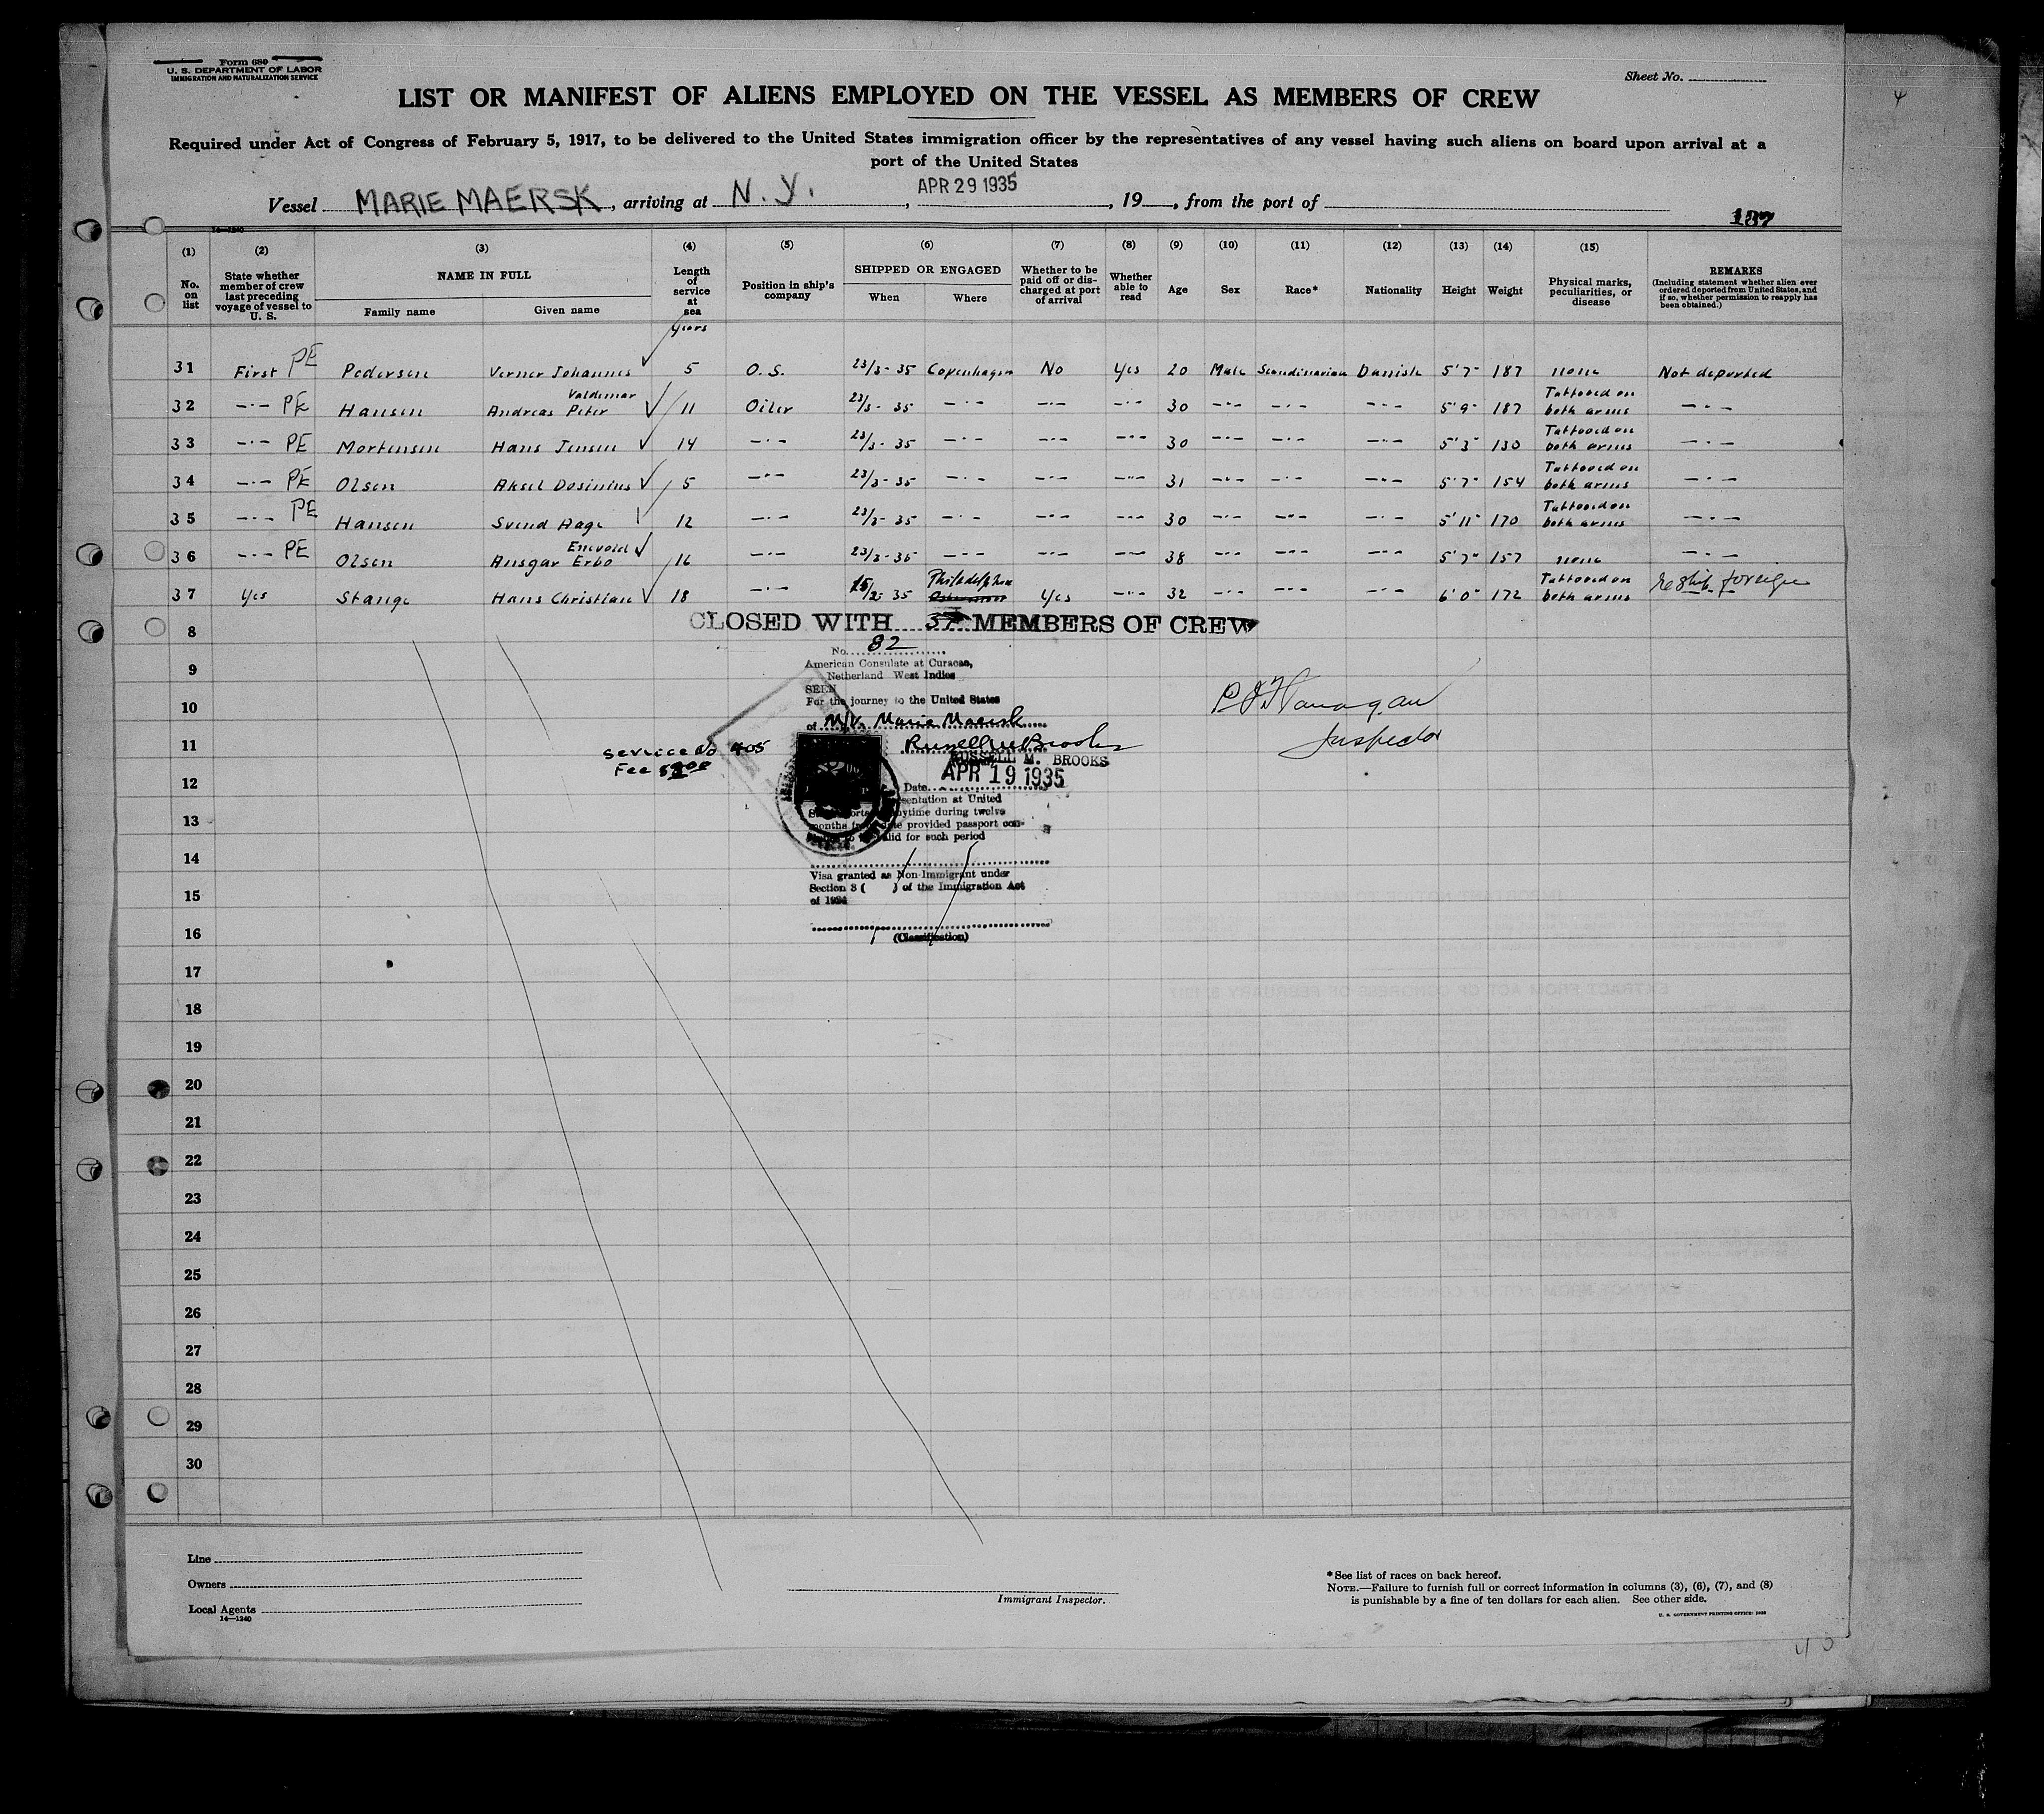 Form 680
U. S. DEPARTMENT OF LABOR
IMMIGRATION AND NATURALIZATION SERVICE
Sheet No.
LIST OR MANIFEST OF ALIENS EMPLOYED ON THE VESSEL AS MEMBERS OF CREW
Required under Act of Congress of February 5, 1917, to be delivered to the United States immigration officer by the representatives of any vessel having such aliens on board upon arrival at a
port of the United States
Vessel MARIE MAERSK, arriving at N. Y., APR 29 1935, 19, from the port of
187
14—1240
(1) (2) (3) (4) (5) (6) (7) (8) (9) (10) (11) (12) (13) (14) (15)
No. on list
State whether member of crew last preceding voyage of vessel to U. S.
NAME IN FULL
Family name Given name
Length of service at sea
years
Position in ship's company
SHIPPED OR ENGAGED
When Where
Whether to be paid off or discharged at port of arrival
Whether able to read
Age Sex Race* Nationality Height Weight
Physical marks, peculiarities, or disease
REMARKS
(Including statement whether alien ever ordered deported from United States, and if so, whether permission to reapply has been obtained.)
31 First PE Pedersen Verner Johannes 5 O. S. 23/3-35 Copenhagen No Yes 20 Male Scandinavian Danish 5'7" 187 none Not deported
32 -"- PE Hansen Andreas Peter Valdemar 11 Oiler 23/3-35 -"- -"- -"- 30 -"- -"- -"- 5'9" 187 Tattooed on both arms -"-
33 -"- PE Mortensen Hans Jensen 14 -"- 23/3-35 -"- -"- -"- 30 -"- -"- -"- 5'3" 130 Tattooed on both arms -"-
34 -"- PE Olsen Aksel Dosinius 5 -"- 23/3-35 -"- -"- -"- 31 -"- -"- -"- 5'7" 154 Tattooed on both arms -"-
35 -"- PE Hansen Svend Aage 12 -"- 23/3-35 -"- -"- -"- 30 -"- -"- -"- 5'11" 170 Tattooed on both arms -"-
36 -"- PE Olsen Ansgar Erbo Enevold 16 -"- 23/3-35 -"- -"- -"- 38 -"- -"- -"- 5'7" 157 none -"-
37 Yes Stange Hans Christian 18 -"- 35 Philadelphia Yes -"- 32 -"- -"- -"- 6'0" 172 Tattooed on both arms Reship foreign
CLOSED WITH 37 MEMBERS OF CREW
8
No. 82
American Consulate at Curacao,
Netherland West Indies
9
SEEN
For the journey to the United States
10
of M/V. Marie Maersk
P J Flanagan
Inspector
11
Service No 405
Fee
Russell M Brooks
RUSSELL M. BROOKS
APR 19 1935
12
Date
sentation at United
ytime during twelve
13
months provided passport con-
lid for such period
14
Visa granted as Non-Immigrant under
Section 3 ( ) of the Immigration Act
15
of 1924
16
(Classification)
17
18
19
20
21
22
23
24
25
26
27
28
29
30
Line
Owners
Local Agents
14—1240
Immigrant Inspector.
*See list of races on back hereof.
NOTE.—Failure to furnish full or correct information in columns (3), (6), (7), and (8)
is punishable by a fine of ten dollars for each alien. See other side.
U. S. GOVERNMENT PRINTING OFFICE: